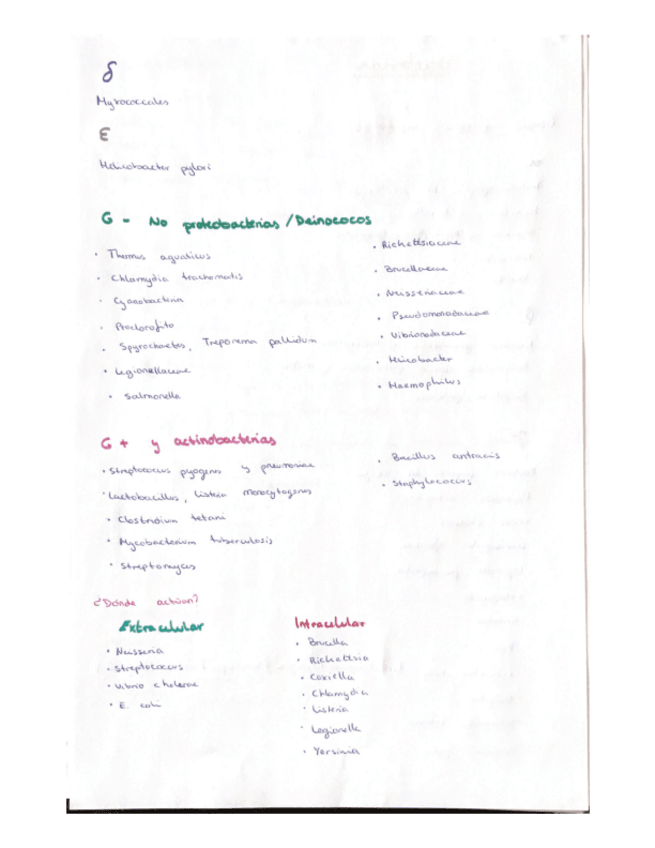 δ
Myxococcales
ε
Helicobacter pylori
G - No proteobacterias / Deinococos
• Thermus aquaticus
• Chlamydia trachomatis
• Cyanobacteria
• Proclorofito
• Spyrochaetes, Treponema pallidum
• Legionellaceae
• Salmonella
• Richettsiaceae
• Brucellaceae
• Neisseriaceae
• Pseudomonadaceae
• Vibrionadaceae
• Helicobacter
• Haemophilus
G + y actinobacterias
• Streptococcus pyogens y pneumoniae
• Lactobacillus, Listeria monocytogens
• Clostridium tetani
• Mycobacterium tuberculosis
• Streptomyces
• Bacillus antracis
• Staphylococcus
¿Dónde actúan?
Extracelular
• Neisseria
• Streptococcus
• Vibrio cholerae
• E. coli
Intracelular
• Brucella
• Richettsia
• Coxiella
• Chlamydia
• Listeria
• Legionella
• Yersinia